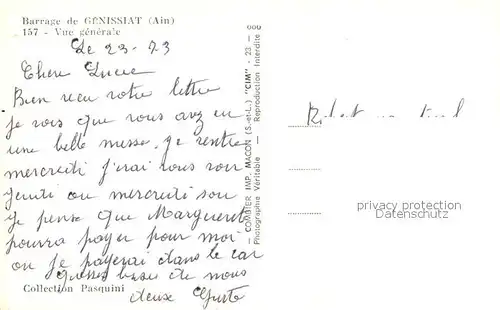 Barrage de GÉNISSIAT (Ain)
157 - Vue générale
Le 23 - 73
Chere Lucie
Bien reçu votre lettre
je vois que vous avez eu
une belle messe. je rentre
mercredi j'irai vous voir
jeudi ou mercredi soir
Je pense que Marguerite
pourra payer pour moi
ou je payerai dans le car
grosses bises de nous
deux
Collection Pasquini
— COMBIER IMP. MACON (S.-et-L.) "CIM" - 23 -
Photographie Véritable - Reproduction Interdite
privacy protection
Datenschutz